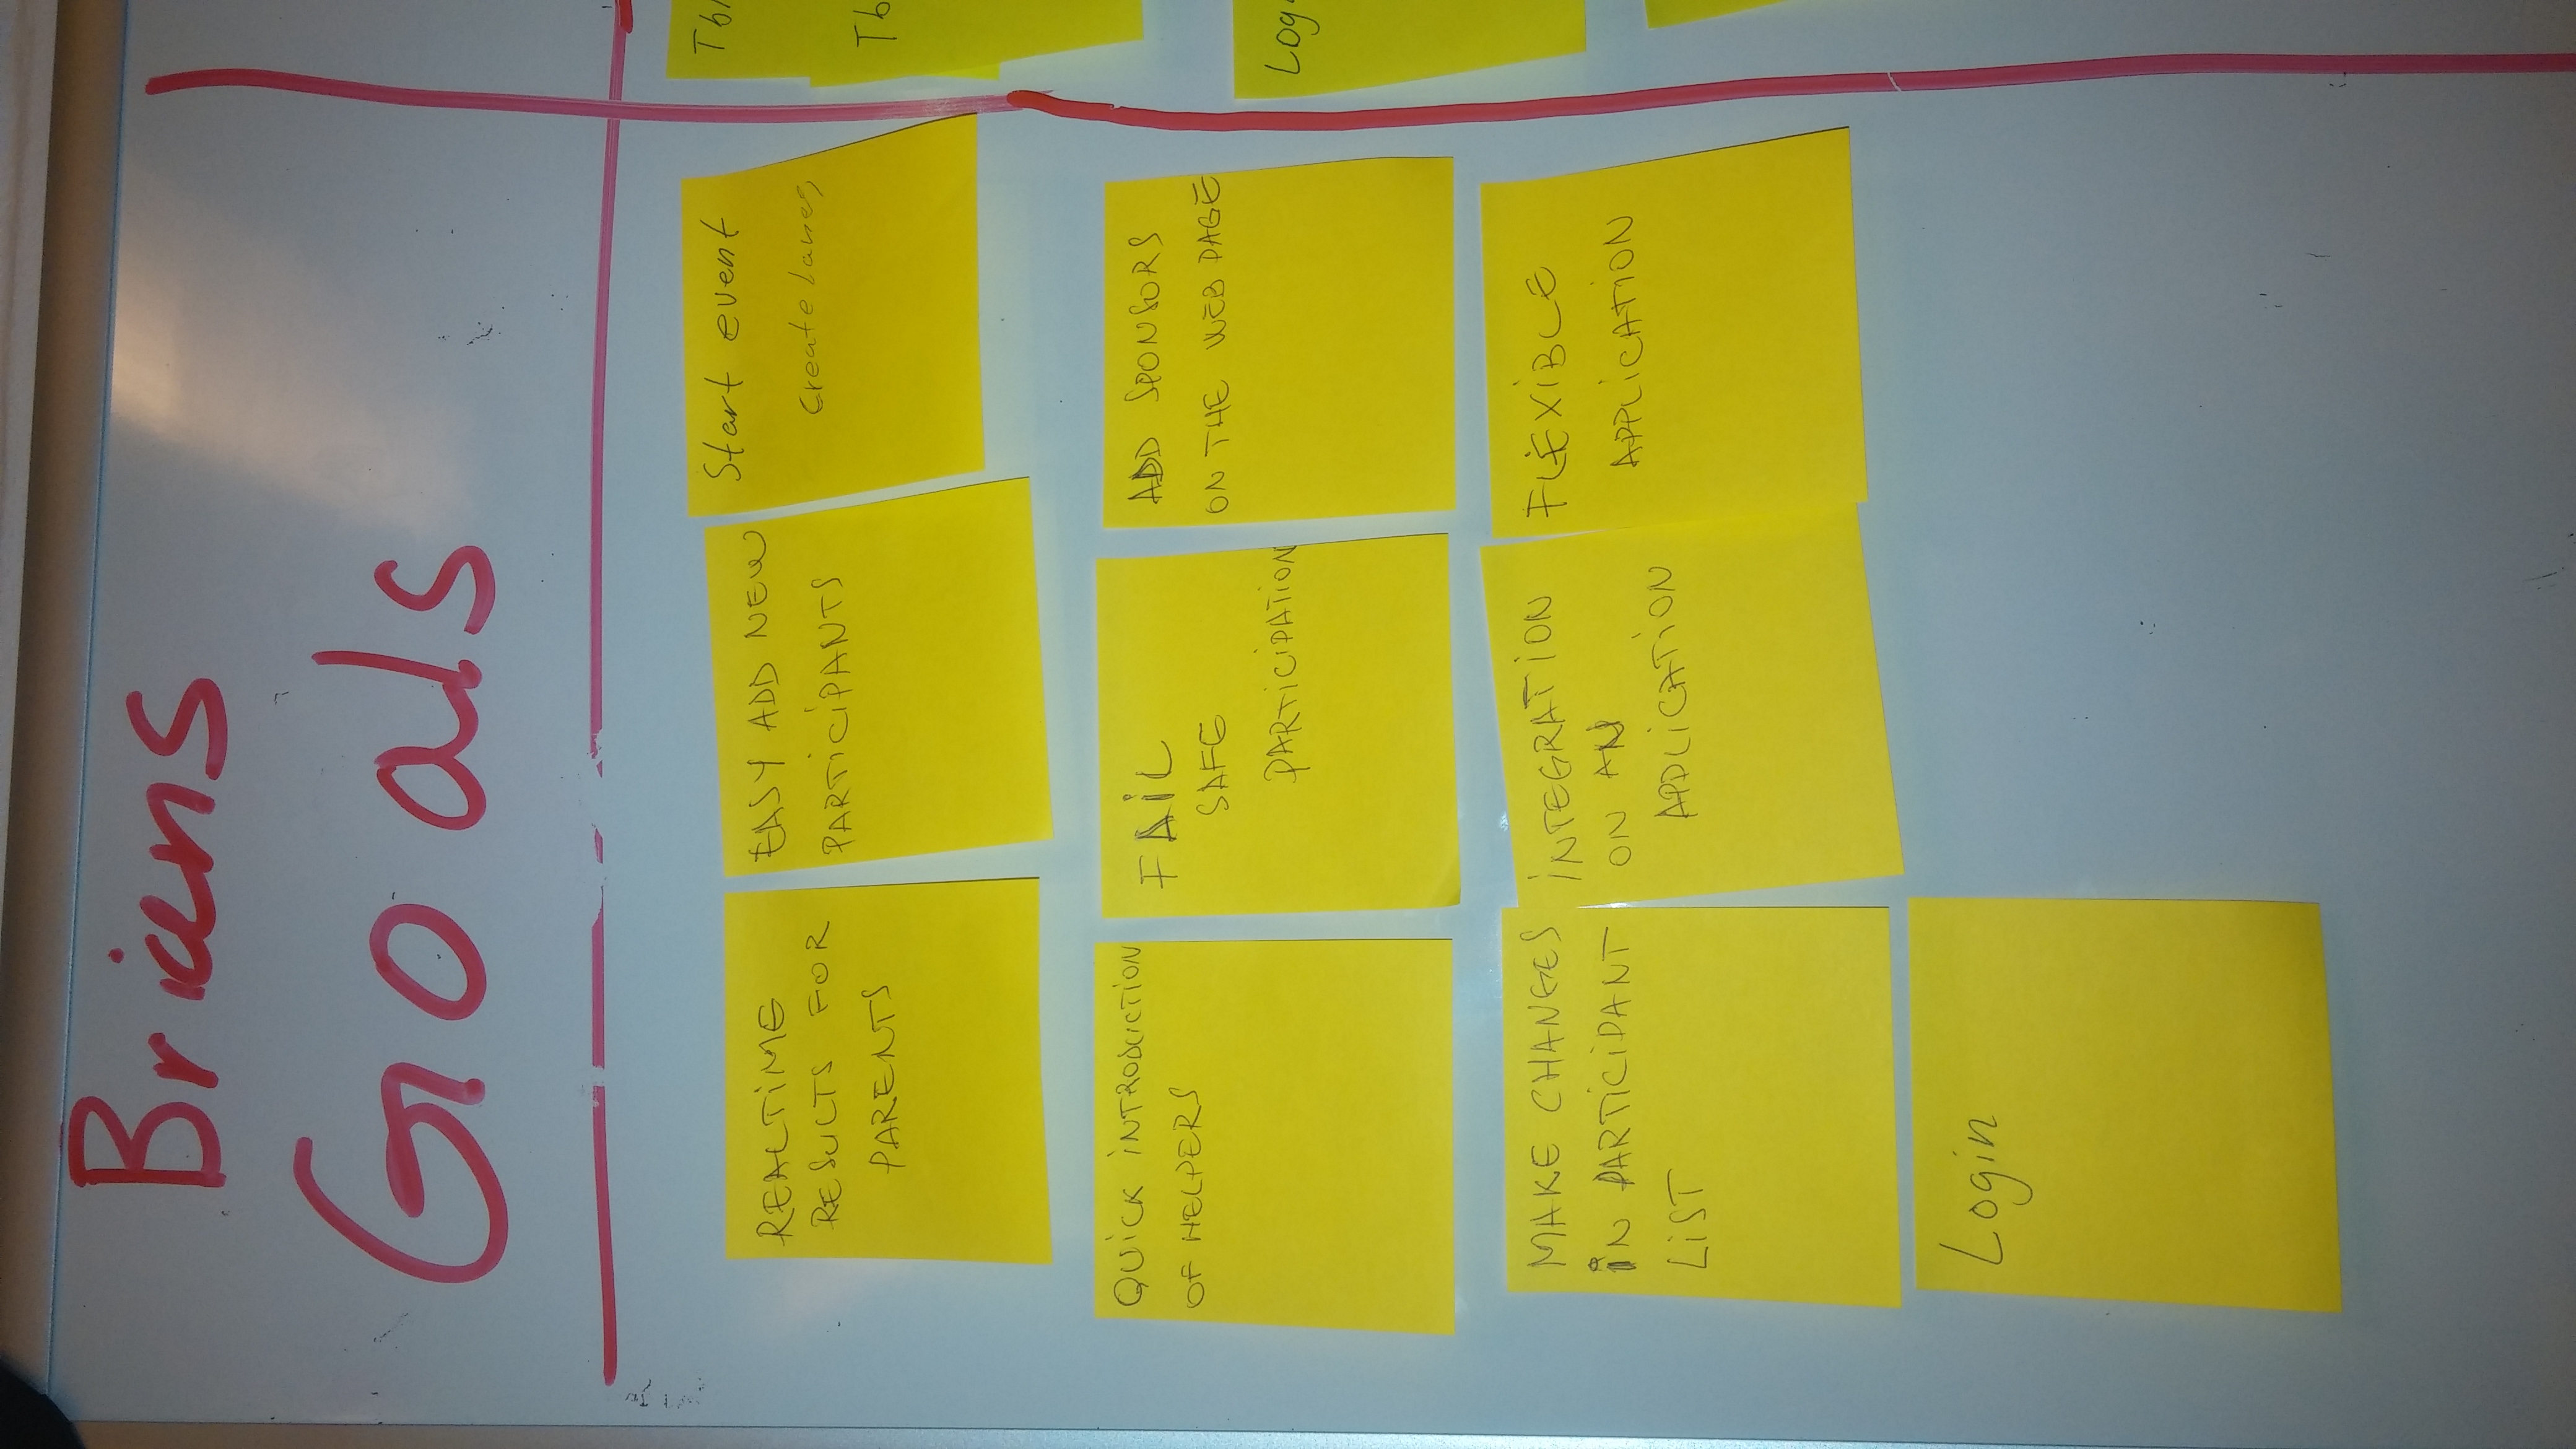 Brians
Goals
REALTIME
RESULTS FOR
PARENTS
EASY ADD NEW
PARTICIPANTS
Start event
Create lanes
QUICK INTRODUCTION
OF HELPERS
FAIL
SAFE
PARTICIPATION
ADD SPONSORS
ON THE WEB PAGE
MAKE CHANGES
IN PARTICIPANT
LIST
INTEGRATION
ON AN
APPLICATION
FLEXIBLE
APPLICATION
Login